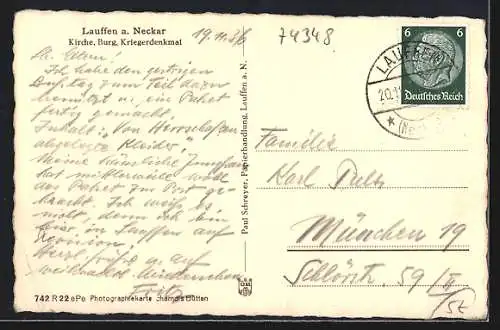 Lauffen a. Neckar
Kirche, Burg, Kriegerdenkmal
19.11.36
74348
L. Eltern!
Ich habe den gestrigen
Bußtag zum Teil dazu
benützt u. ein Paket
fertig gemacht.
Inhalt: "Von Herrschaften
abgelegte Kleider".
Meine
hat mittlerweile wohl
das Paket zur Post ge-
bracht. Ich weiß es
nicht, denn ich bin
hier in Lauffen auf
Revision!
Herzl. Grüße u. auf
Wiedersehen
Fritz
742 R 22 ePe Photographiekarte Chamois Bütten
Paul Schreyer, Papierhandlung, Lauffen a. N.
6 6
Deutsches Reich
LAUFFEN
20.11
(Neck
Familie
Karl
München 19
59/II